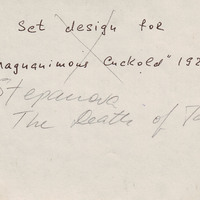 Set design for
Magnanimous Cuckold" 192
Stepanova
The Death of Ta